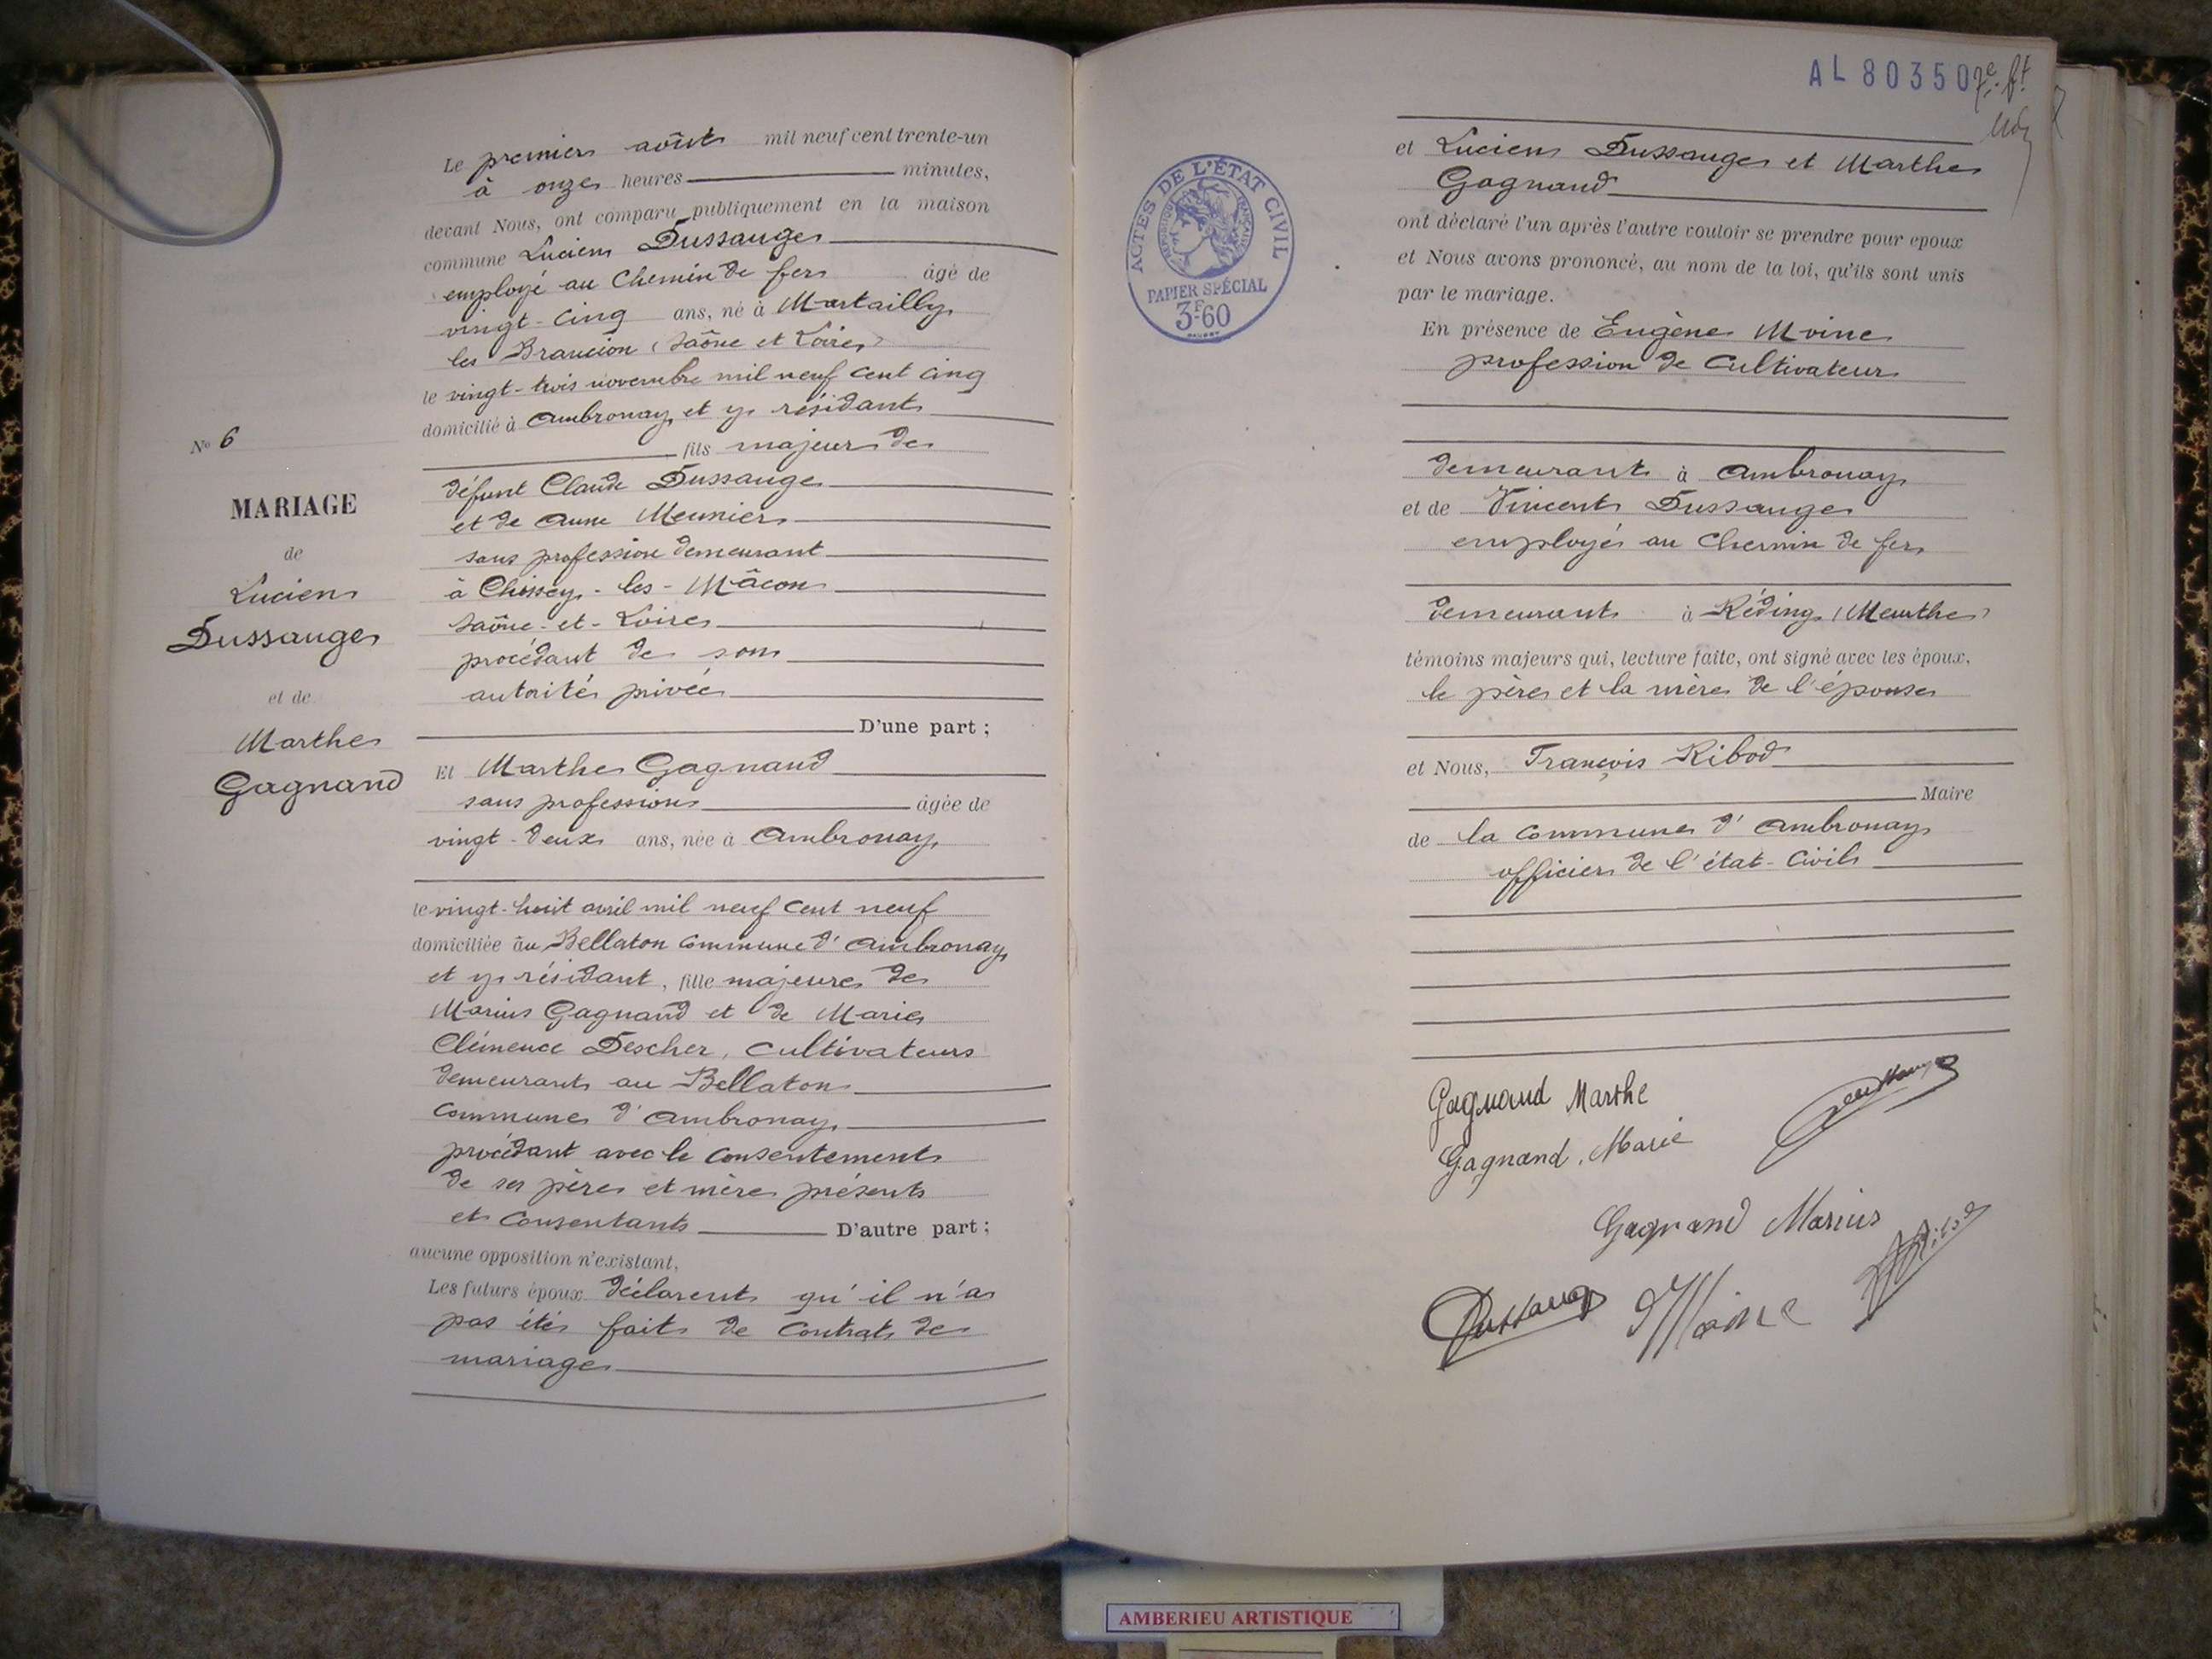 Le premier août mil neuf cent trente-un
à onze heures minutes,
devant Nous, ont comparu publiquement en la maison
commune Lucien Dussauge
employé au Chemin de fer âgé de
vingt-cinq ans, né à Martailly
les Brancion (Saône et Loire)
le vingt-trois novembre mil neuf cent cinq
domicilié à Ambronay et y résidant
fils majeur de
défunt Claude Dussauge
et de Anne Meunier
sans profession demeurant
à Chissey-les-Mâcon
Saône-et-Loire
procédant de son
autorité privée
D'une part ;
Et Marthe Gagnand
sans profession âgée de
vingt-deux ans, née à Ambronay
le vingt-huit avril mil neuf cent neuf
domiciliée au Bellaton commune d'Ambronay
et y résidant, fille majeure de
Marius Gagnand et de Marie
Clémence Descher, cultivateurs
demeurant au Bellaton
commune d'Ambronay
procédant avec le consentement
de ses père et mère présents
et consentants D'autre part ;
aucune opposition n'existant,
Les futurs époux déclarent qu'il n'a
pas été fait de contrat de
mariage
No 6
MARIAGE
de
Lucien
Dussauge
et de
Marthe
Gagnand
AL 80350
7e ft
ACTES DE L'ÉTAT CIVIL
RÉPUBLIQUE FRANÇAISE
PAPIER SPÉCIAL
3F60
et Lucien Dussauge et Marthe
Gagnand
ont déclaré l'un après l'autre vouloir se prendre pour époux
et Nous avons prononcé, au nom de la loi, qu'ils sont unis
par le mariage.
En présence de Eugène Moine
profession de cultivateur
demeurant à Ambronay
et de Vincent Dussauge
employé au Chemin de fer
demeurant à Réding (Meurthe)
témoins majeurs qui, lecture faite, ont signé avec les époux,
le père et la mère de l'épouse
et Nous, François Ribod
Maire
de la commune d'Ambronay
officier de l'état-civil
Gagnand Marthe
Dussauge
Gagnand Marie
Gagnand Marius
Ribod
Dussauge
Moine
AMBERIEU ARTISTIQUE